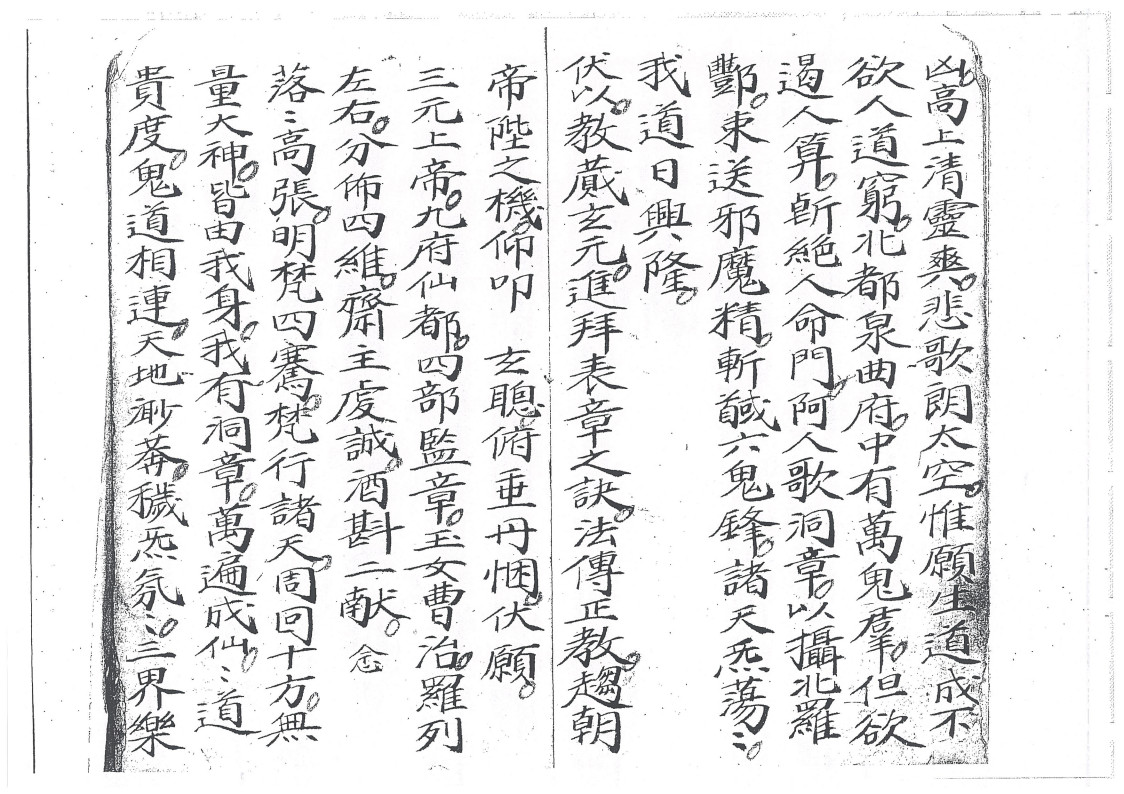 凶。高上清靈爽。悲歌朗太空。惟願生道成。不
欲人道窮。北都泉曲府。中有萬鬼羣。但欲
遏人算。斷絕人命門。阿人歌洞章。以攝北羅
酆。束送邪魔精。斬馘六鬼鋒。諸天炁蕩〻。
我道日興隆。
伏以。教蕆玄元。進拜表章之訣。法傳正教。趨朝
帝陛之機。仰叩 玄聰。俯垂丹悃。伏願。
三元上帝。九府仙都。四部監章。玉女曹治。羅列
左右。分佈四維。齋主虔誠。酒斟二献。 念
落〻高張。明梵四騫。梵行諸天。周回十方。無
量大神。皆由我身。我有洞章。萬遍成仙。〻道
貴度。鬼道相連。天地渺莽。穢炁氛〻。三界樂